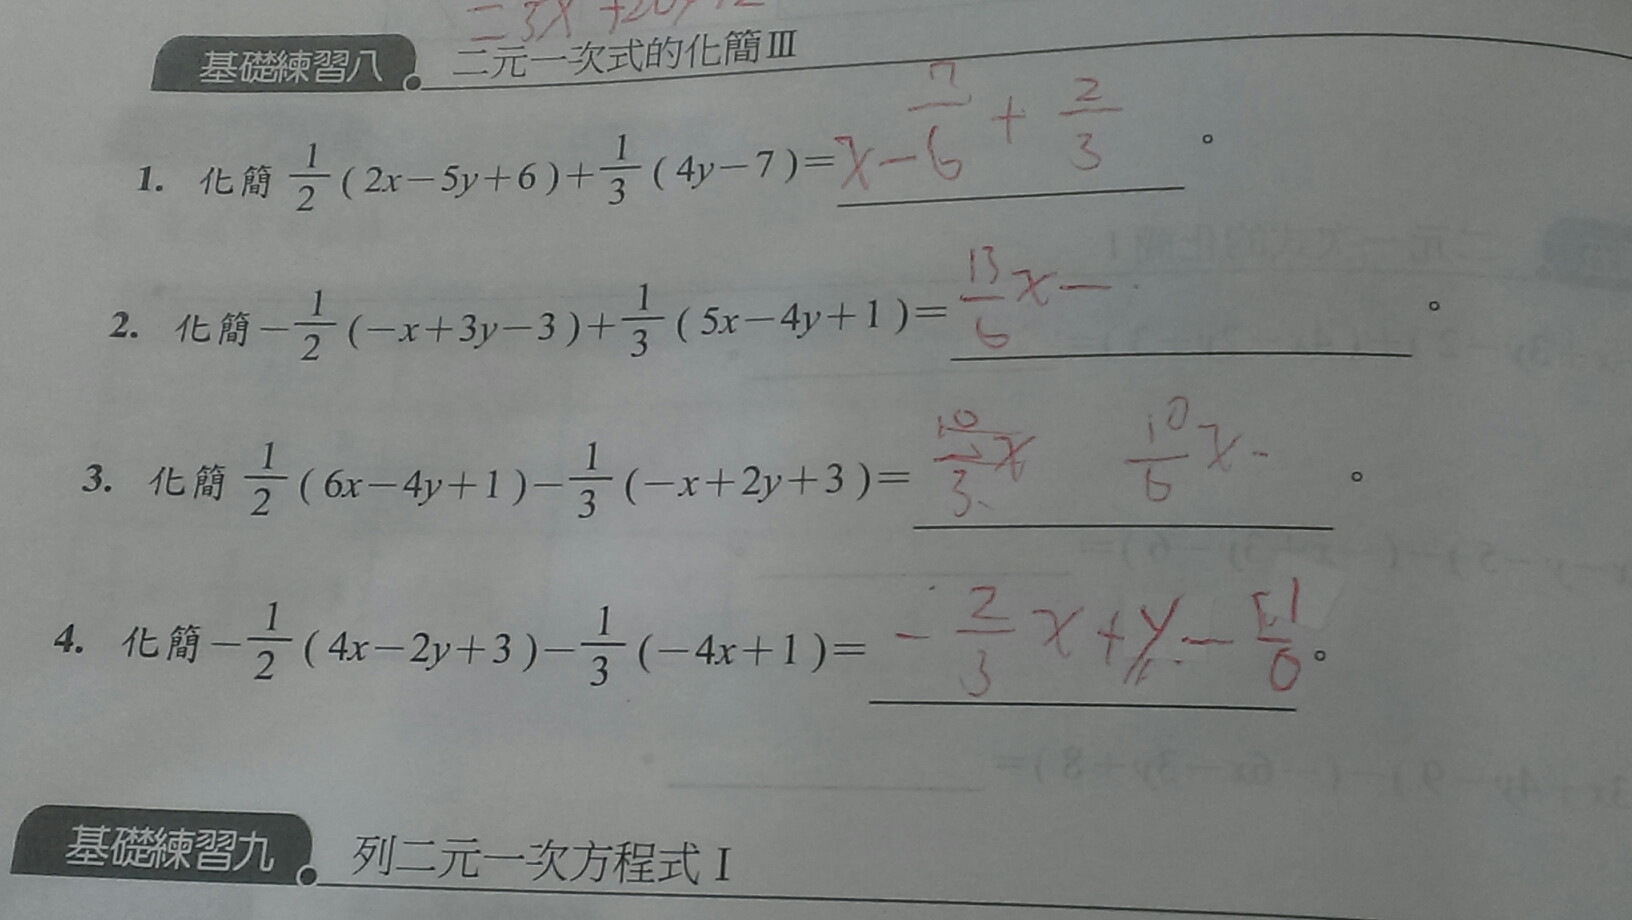 =3x+20y+2
基礎練習八 二元一次式的化簡Ⅲ
1. 化簡 1/2 (2x-5y+6)+1/3 (4y-7)=x-7/6+2/3。
2. 化簡-1/2 (-x+3y-3)+1/3 (5x-4y+1)=13/6 x-。
3. 化簡 1/2 (6x-4y+1)-1/3 (-x+2y+3)=10/3 x 10/6 x-。
4. 化簡-1/2 (4x-2y+3)-1/3 (-4x+1)=-2/3 x+y-11/6。
基礎練習九 列二元一次方程式Ⅰ